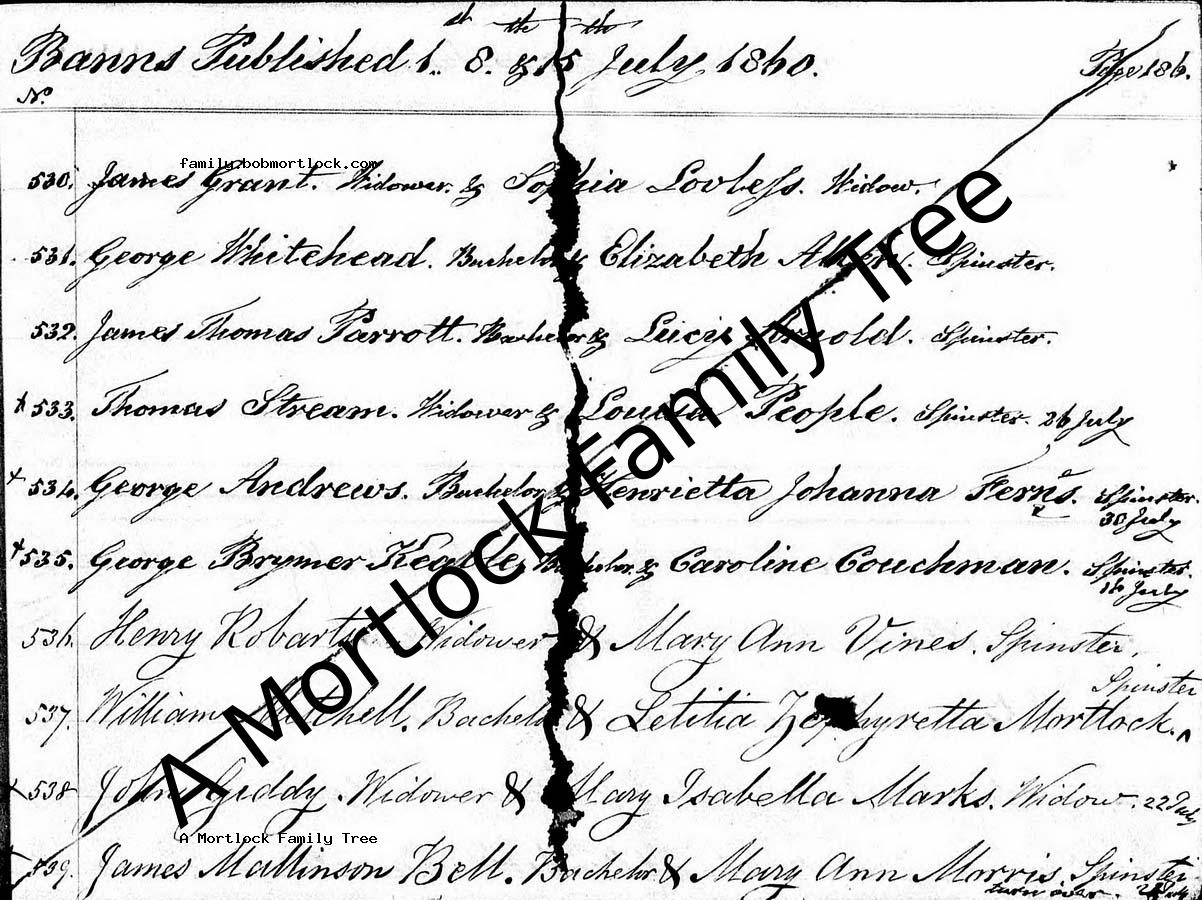 Banns Published 1st 8th & 15th July 1860. Page 186.
No.
family.bobmortlock.com
530. James Grant. Widower. & Sophia Lovless. Widow.
531. George Whitehead. Bachelor & Elizabeth Spinster.
532. James Thomas Parrott. Bachelor & Lucy Arnold. Spinster.
x 533. Thomas Stream. Widower & Louisa People. Spinster. 26 July
x 534. George Andrews. Bachelor & Henrietta Johanna Ferns. Spinster.
30 July
x 535. George Brymer Bachelor. & Caroline Couchman. Spinster.
18 July
536. Henry Robarts Widower & Mary Ann Vines. Spinster.
Spinster
537. William Mitchell. Bachelor & Letitia Zephyretta Mortlock. ^
x 538 John Giddy. Widower & Mary Isabella Marks. Widow. 22 July
A Mortlock Family Tree
A Mortlock Family Tree
539. James Mallinson Bell. Bachelor & Mary Ann Morris. Spinster
turn over. July